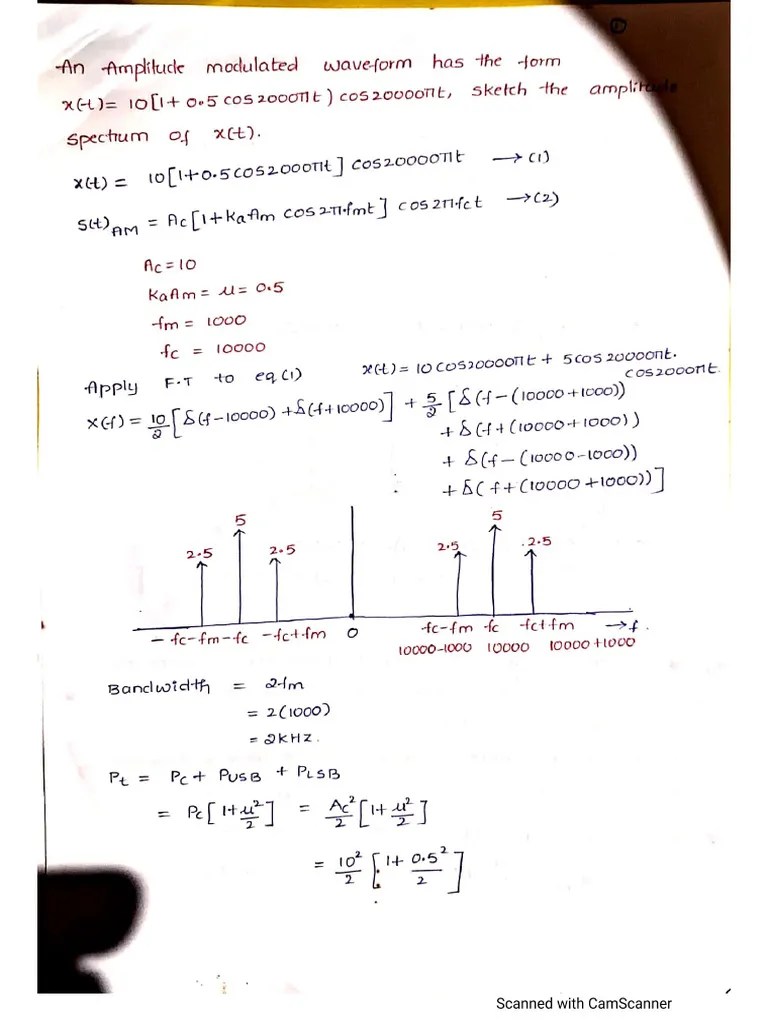 ①
An Amplitude modulated waveform has the form
x(t)= 10[1+ 0.5 cos2000πt) cos20000πt, sketch the amplitude
spectrum of x(t).
x(t) = 10[1+0.5cos2000πt] cos20000πt → (1)
S(t)AM = Ac[1+KaAm cos2π.fmt] cos2πfct → (2)
Ac = 10
KaAm = μ = 0.5
fm = 1000
fc = 10000
Apply F.T to eq(1)
x(t) = 10cos20000πt + 5cos20000πt.
cos2000πt.
X(f) = 10/2 [δ(f-10000) + δ(f+10000)] + 5/2 [δ(f-(10000+1000))
+ δ(f+(10000+1000))
+ δ(f-(10000-1000))
+ δ(f+(10000+1000))]
2.5 5 2.5 2.5 5 2.5
-fc-fm -fc -fc+fm 0 fc-fm fc fc+fm → f.
10000-1000 10000 10000+1000
Bandwidth = 2fm
= 2(1000)
= 2KHz.
Pt = Pc + PUSB + PLSB
= Pc[1+μ²/2] = Ac²/2 [1+μ²/2]
= 10²/2 [1+ 0.5²/2]
Scanned with CamScanner